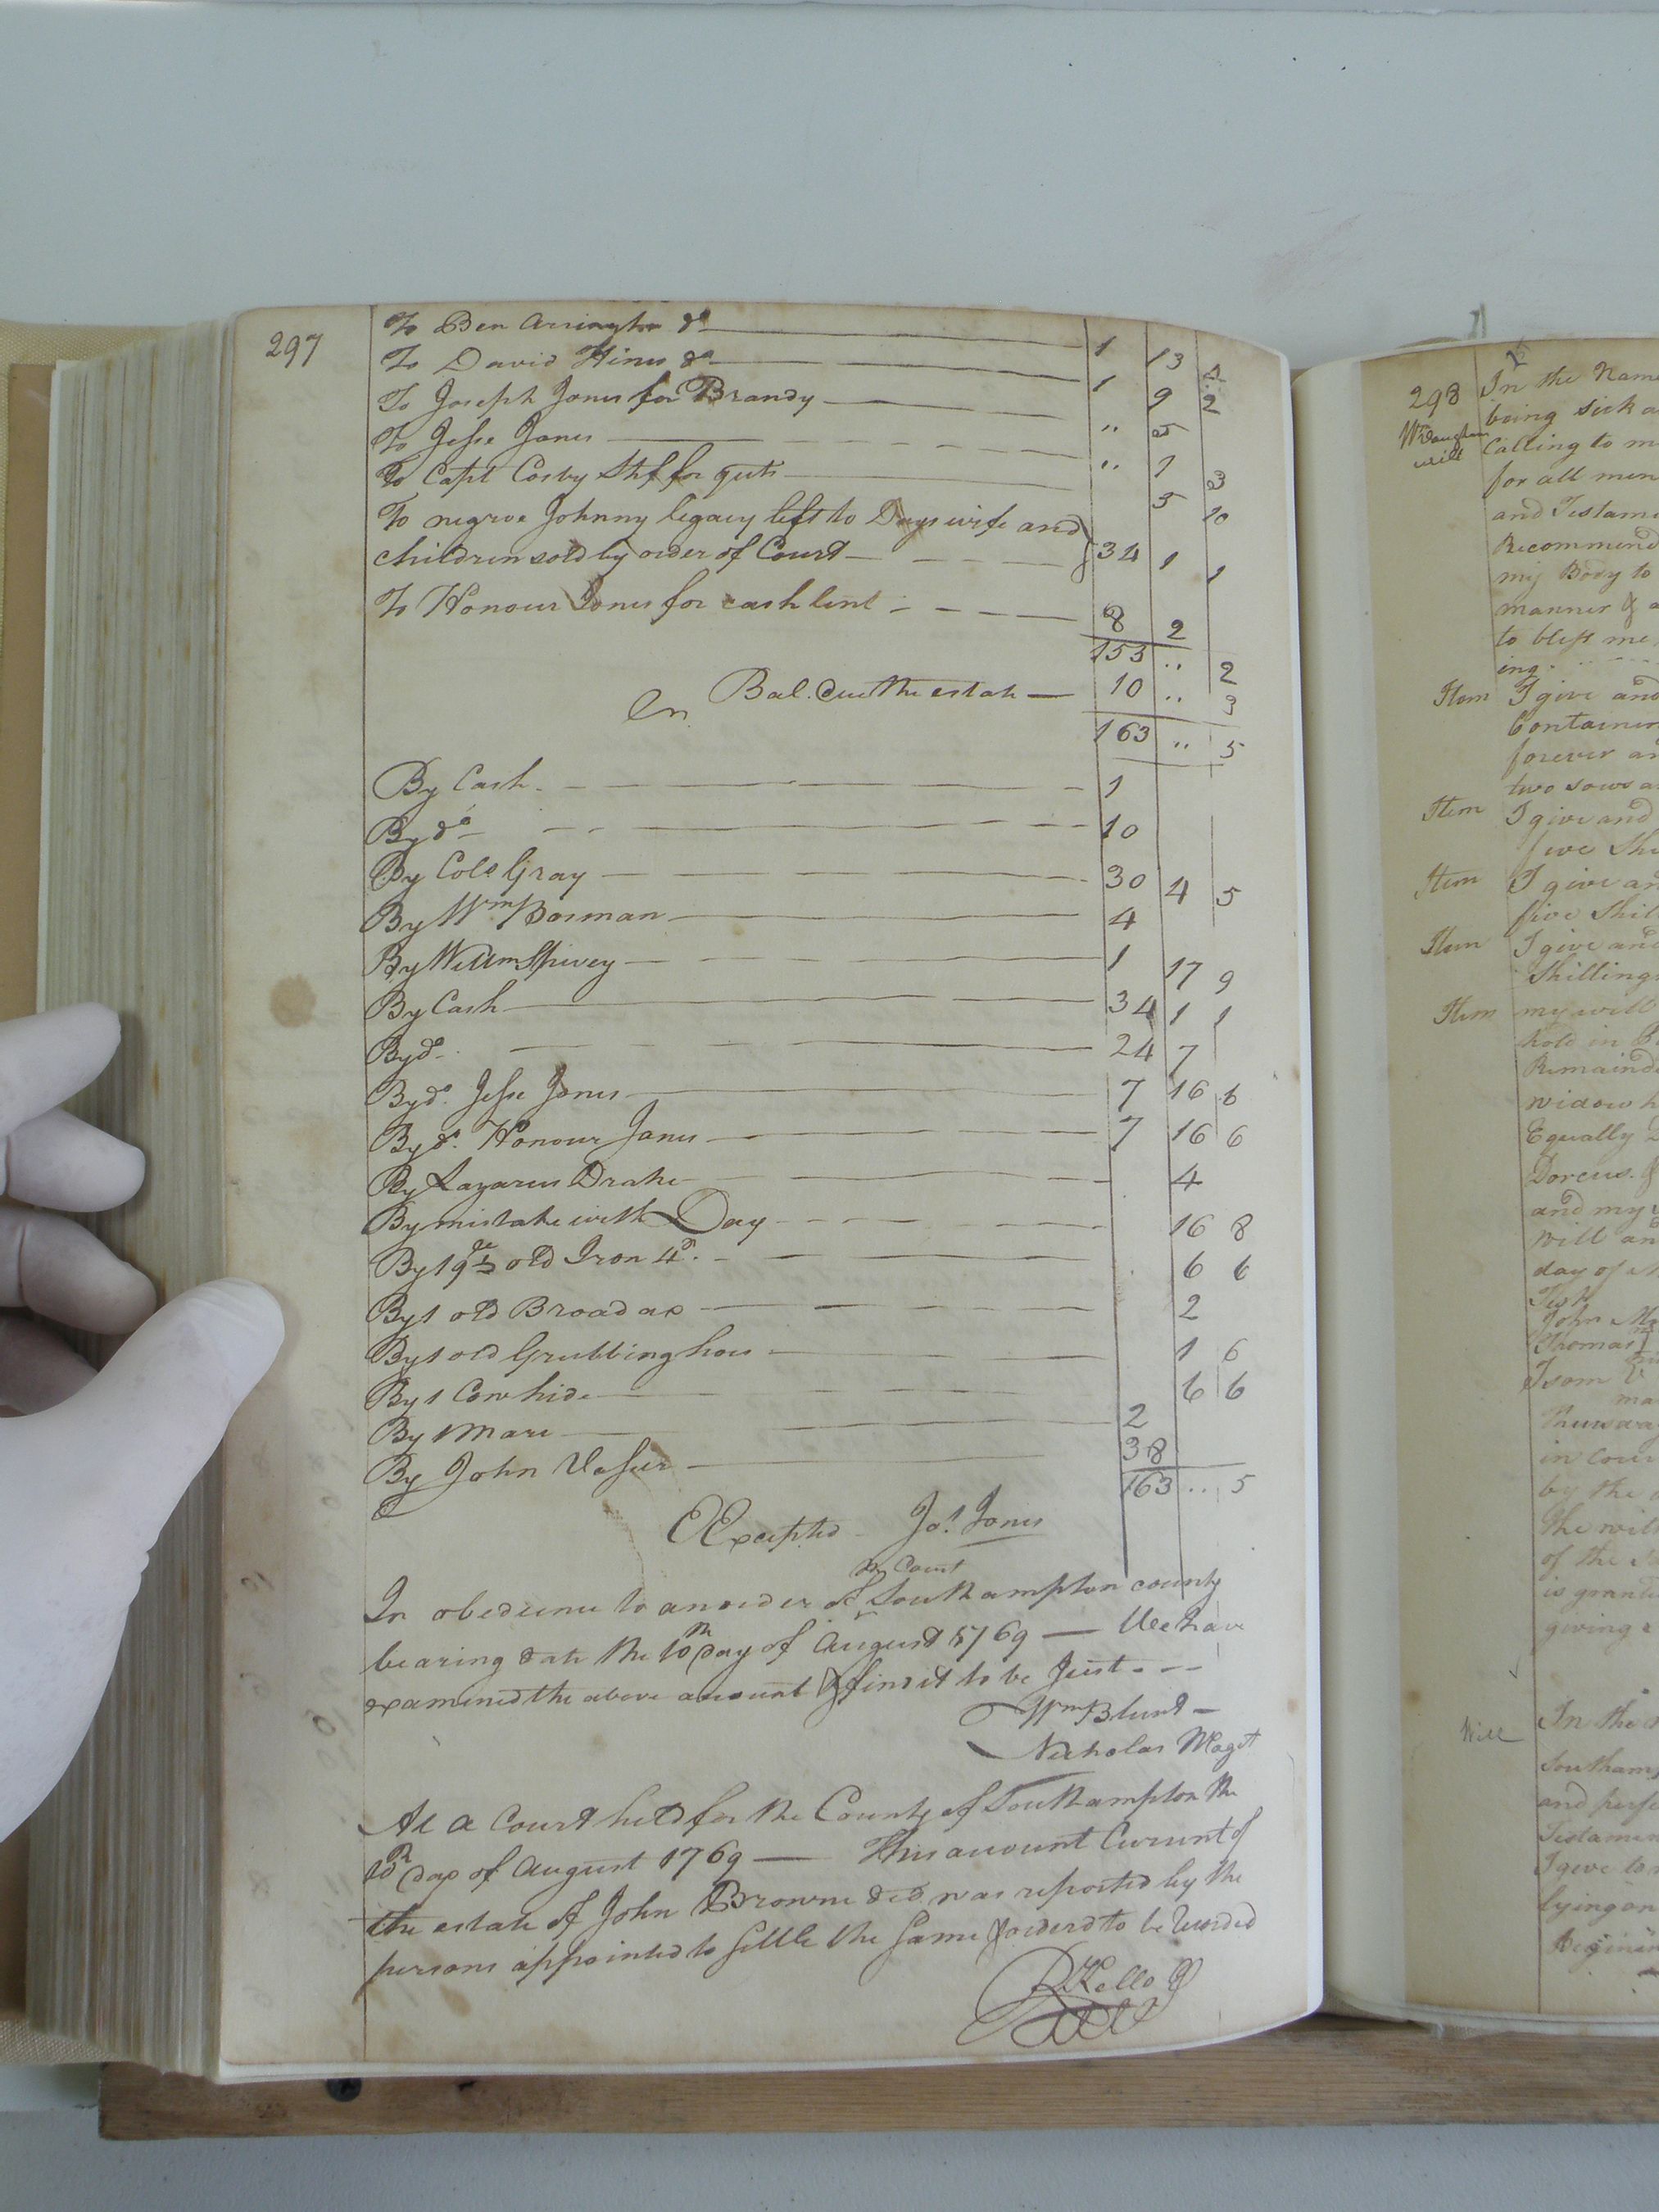 297
To Ben Arrington do 1 13 2
To David Hines do 1 9 2
To Joseph Jones for Brandy " 5
To Jesse Jones " 1 3
To Capt Cosby Shf for quits 5 10
To negroe Johnny legacy left to Days wife and
children sold by order of Court 34 1 1
To Honour Jones for cash lent 8 2
153 .. 2
Bal. due the estate 10 .. 3
Cr. 163 .. 5
By Cash 1
By do 10
By Colo Gray 30 4 5
By Wm Bosman 4
By Willm Spivey 1 17 9
By Cash 34 1 1
By do 24 7
By do. Jesse Jones 7 16 6
By do. Honour Jones 7 16 6
By Lazarus Drake 4
By mistake with Day 16 8
By 19 old Iron 4d. 6 6
By 1 old Broad ax 2
By 1 old Grubbing how 1 6
By 1 Cow hide 6 6
By 1 Mare 2
By John Vasser 38
163 .. 5
EExcepted Jos. Jones
the Court
In obedience to an order of Southampton county
bearing date the 10th day of August 1769 — We have
examined the above account & find it to be Just
Wm Blunt
Nicholas Maget
At a Court held for the County of Southampton the
10th day of August 1769 — This account Currunt of
the estate of John Browne decd. was reported by the
persons appointed to settle the same & orderd to be Recorded
R Kello
298
Wm Vaughan
will
In the Name
being sick a
Calling to m
for all men
and Testame
Recommend
my Body to
manner & a
to bless me
ing
Item I give and
Container
forever an
two sows a
Item I give and
five Shi
Item I give an
five Shil
Item I give and
Shilling
Item my will
hold in
Remainde
widow h
Equally
Dorcus. &
and my
will an
day of
Test
John
Thomas
Isom
ma
Thursday
in cour
by the
the will
of the
is grante
giving
Will In the
Southam
and perfe
Testamen
I give to
lying on
Beginin